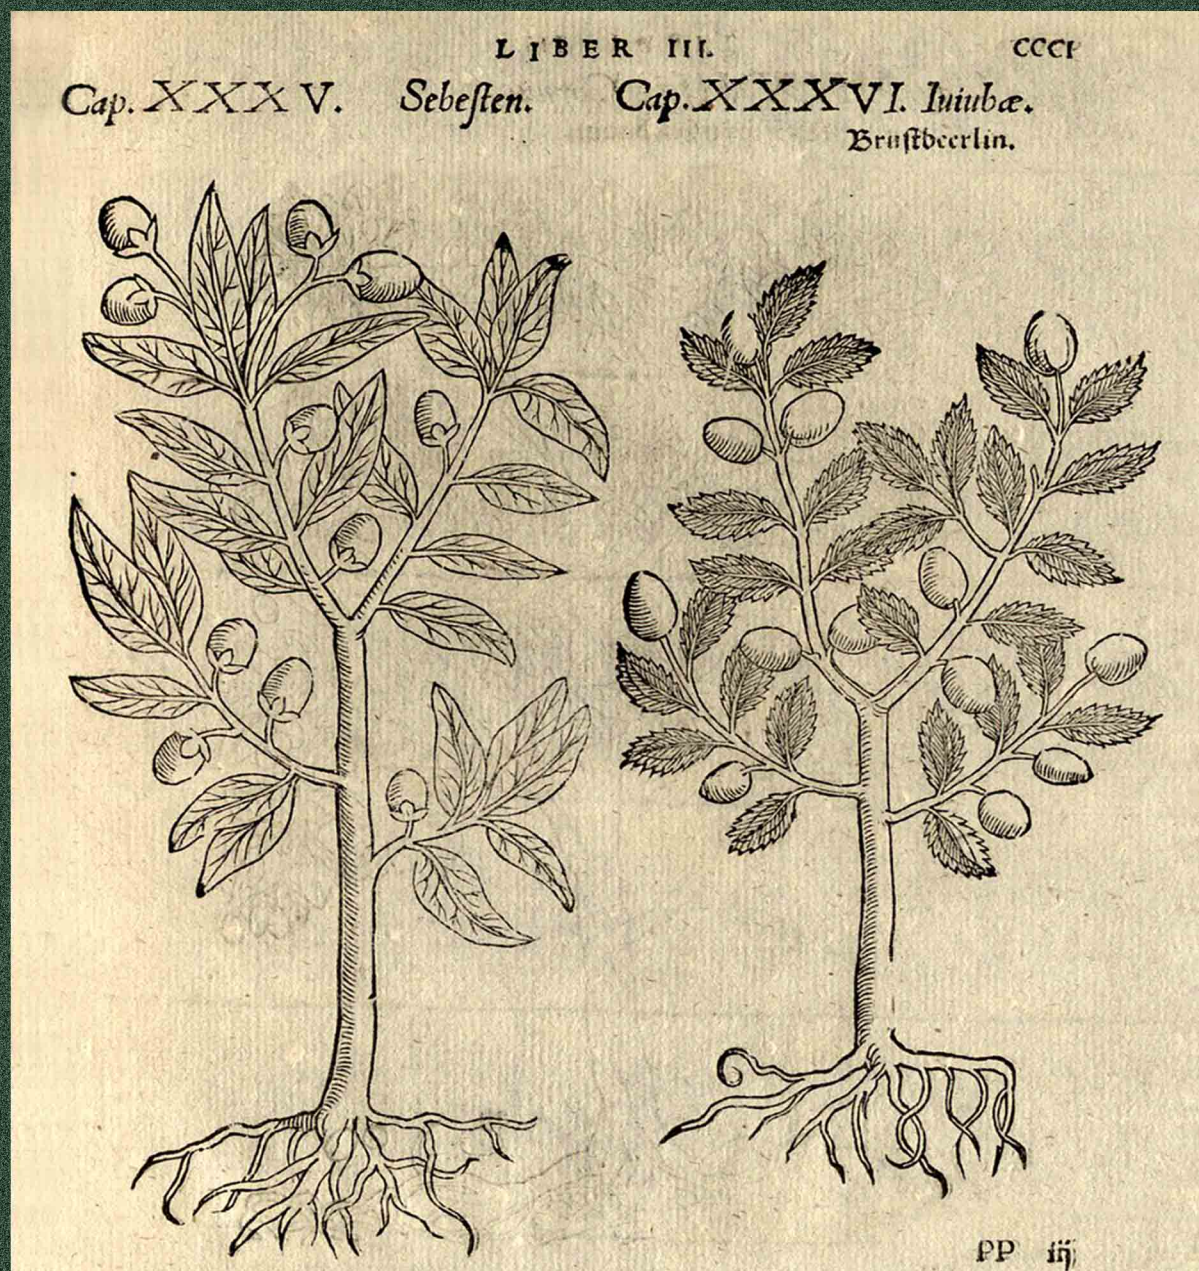 LIBER III. CCCI
Cap. XXXV. Sebeſten. Cap. XXXVI. Iuiubæ.
Bruſtbeerlin.
PP iij